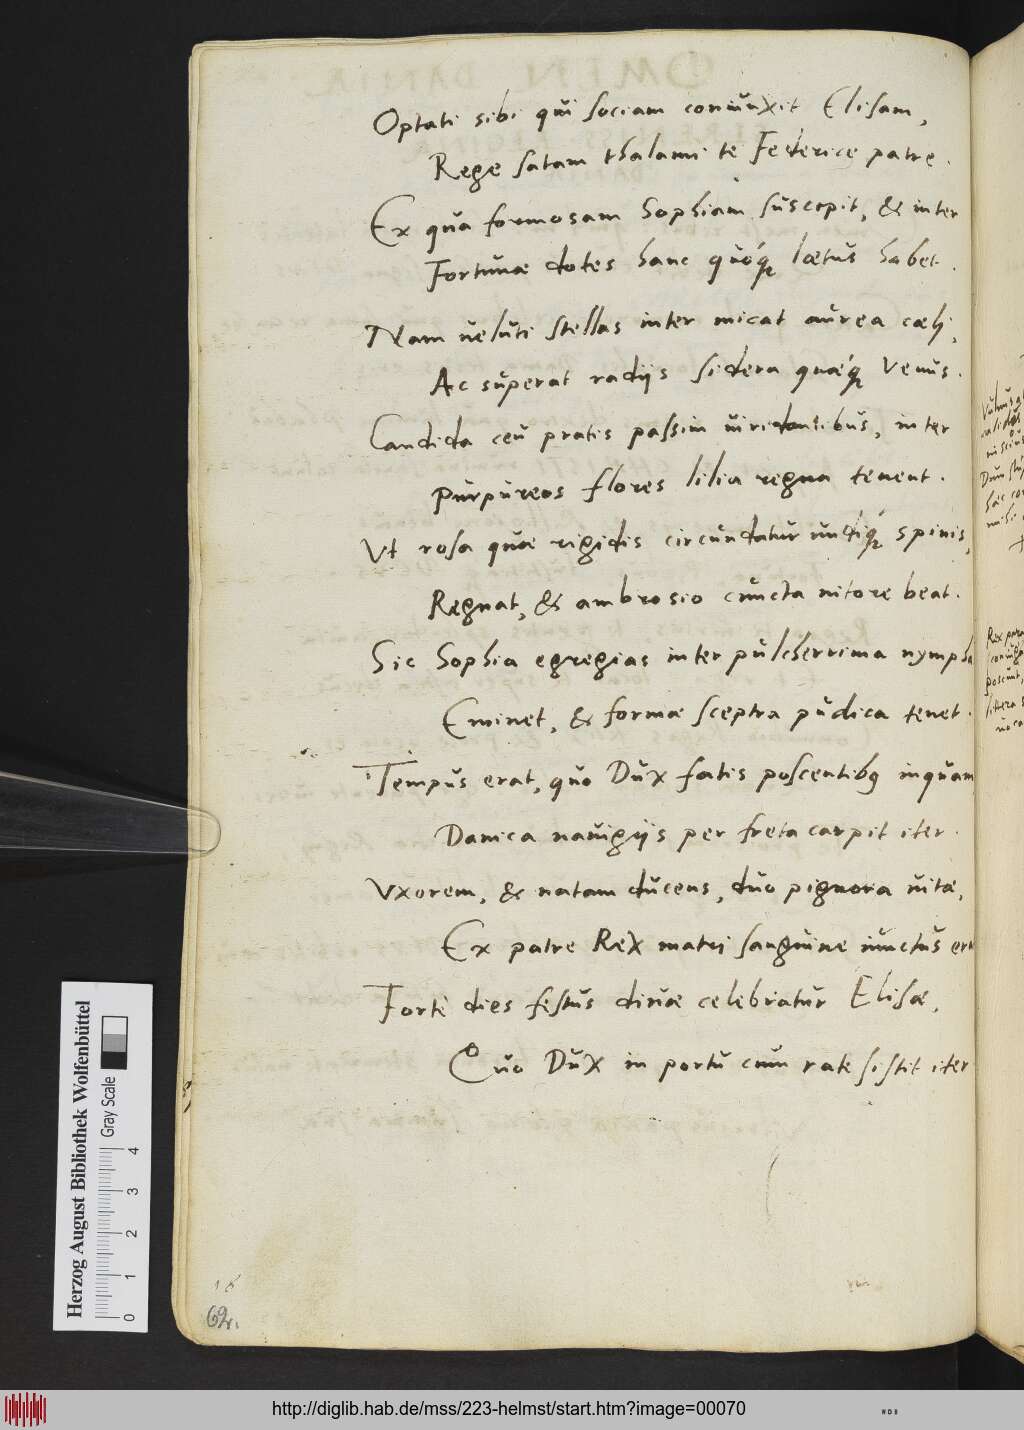 Optati sibi qui sociam coniunxit Elisam,
Rege satam thalami te Federice patre.
Ex qua formosam Sophiam suscepit, & inter
Fortunæ dotes hanc quóq; lætus habet.
Nam ueluti stellas inter micat aurea cæli,
Ac superat radijs sidera quæq; Venus.
Candida ceu pratis passim uiridantibus, inter
Purpureos flores lilia regna tenent.
Vt rosa quæ rigidis circundatur undiq; spinis,
Regnat, & ambrosio cuncta nitore beat.
Sic Sophia egregias inter pulcherrima nympha
Eminet, & formæ sceptra pudica tenet.
Tempus erat, quo Dux fatis poscentibus inquam
Danica nauigijs per freta carpit iter.
Vxorem, & natam ducens, duo pignora uitæ,
Ex patre Rex matri sanguine iunctus era
Fortè dies festus diuæ celebratur Elisæ,
Quo Dux in portu cum rate sistit iter
Rex
poscunt,
littera
Herzog August Bibliothek Wolfenbüttel
Gray Scale
0 1 2 3 4
http://diglib.hab.de/mss/223-helmst/start.htm?image=00070